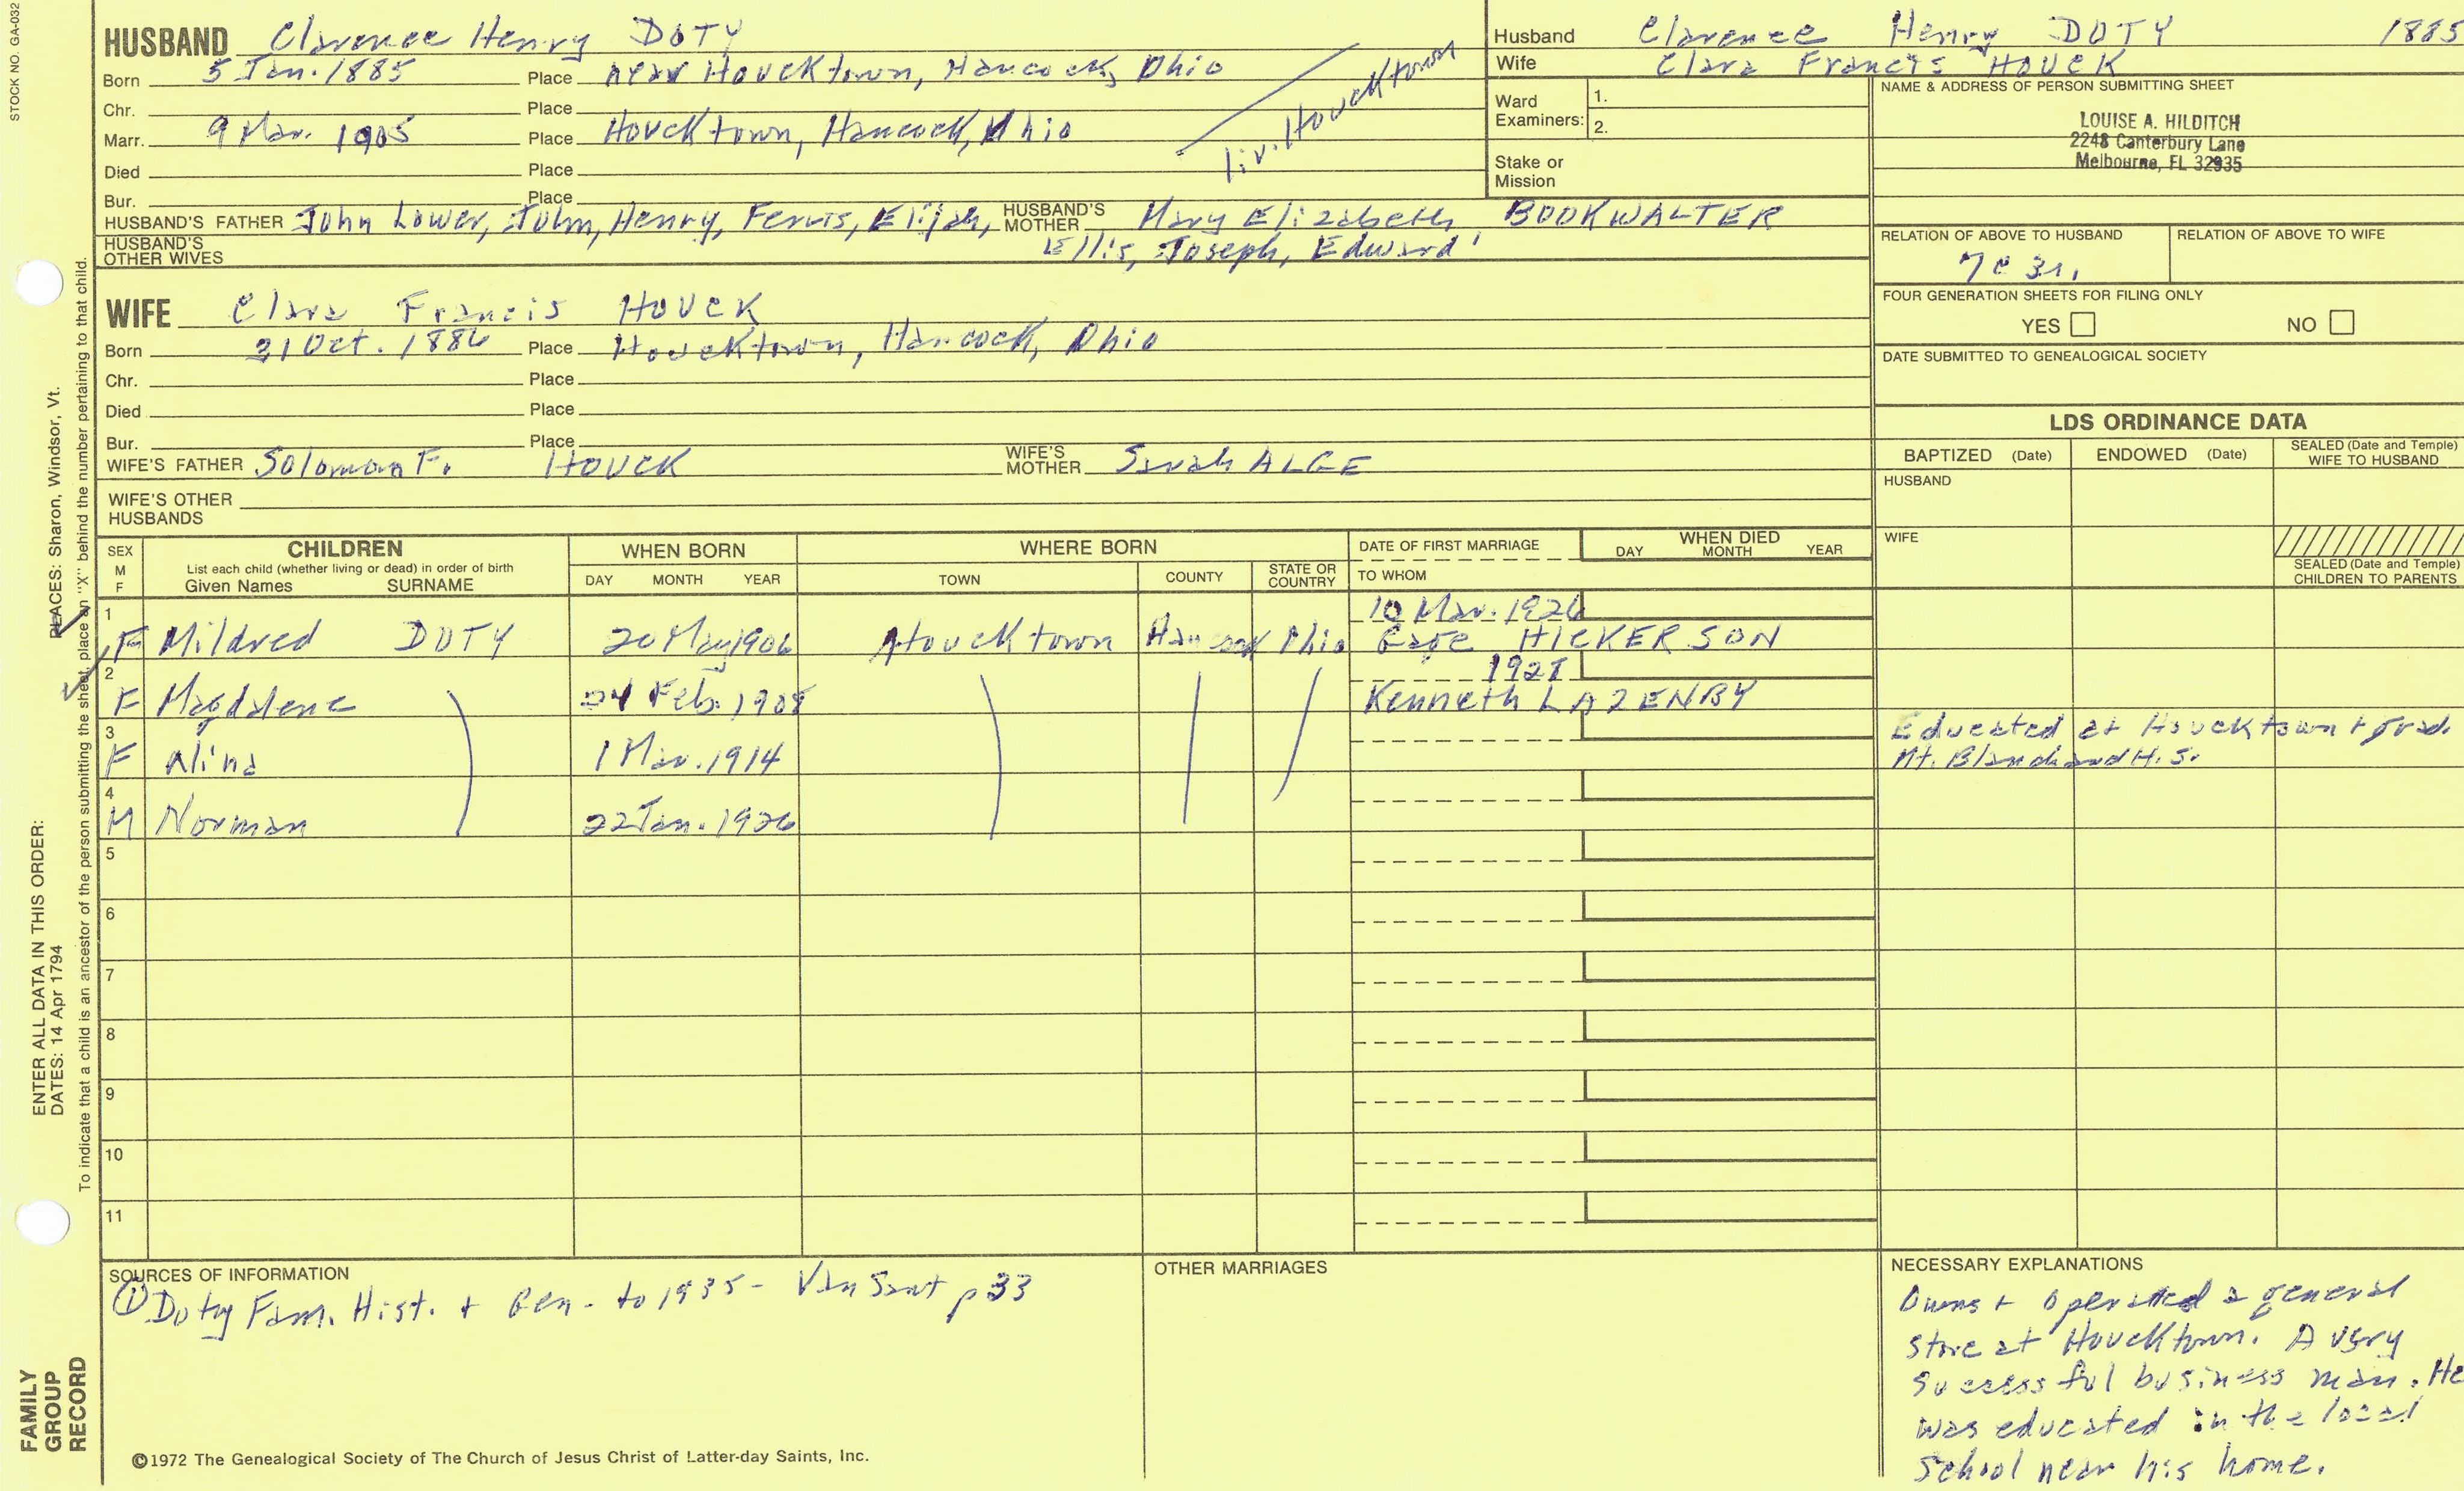 STOCK NO. GA-032
HUSBAND Clarence Henry DOTY
Born 5 Jan. 1885 Place near Houcktown, Hancock, Ohio
Chr. Place
Marr. 9 Mar. 1905 Place Houcktown, Hancock, Ohio
liv. Houcktown
Died Place
Bur. Place
HUSBAND'S FATHER John Lower, John, Henry, Fervis, Elijah, HUSBAND'S MOTHER Mary Elizabeth BOOKWALTER
Ellis, Joseph, Edward
HUSBAND'S OTHER WIVES
WIFE Clara Francis HOUCK
Born 31 Oct. 1886 Place Houcktown, Hancock, Ohio
Chr. Place
Died Place
Bur. Place
WIFE'S FATHER Soloman F. HOUCK WIFE'S MOTHER Sarah ALGE
WIFE'S OTHER HUSBANDS
Husband Clarence Henry DOTY 1885
Wife Clara Francis HOUCK
Ward Examiners: 1.
2.
Stake or Mission
NAME & ADDRESS OF PERSON SUBMITTING SHEET
LOUISE A. HILDITCH
2248 Canterbury Lane
Melbourne, FL 32935
RELATION OF ABOVE TO HUSBAND RELATION OF ABOVE TO WIFE
7C 3r,
FOUR GENERATION SHEETS FOR FILING ONLY
YES NO
DATE SUBMITTED TO GENEALOGICAL SOCIETY
LDS ORDINANCE DATA
BAPTIZED (Date) ENDOWED (Date) SEALED (Date and Temple) WIFE TO HUSBAND
HUSBAND
WIFE
SEALED (Date and Temple) CHILDREN TO PARENTS
SEX M F
CHILDREN
List each child (whether living or dead) in order of birth
Given Names SURNAME
WHEN BORN
DAY MONTH YEAR
WHERE BORN
TOWN COUNTY STATE OR COUNTRY
DATE OF FIRST MARRIAGE
TO WHOM
WHEN DIED
DAY MONTH YEAR
1 10 Mar. 1926
F Mildred DOTY 20 May 1906 Houcktown Hancock Ohio HICKERSON
2 1927
F Magdalene 24 Feb. 1908 Kenneth LAZENBY
3 Educated at Houcktown + grad.
F Alina 1 Mar. 1914 Mt. Blanchard H.S.
4
M Norman 22 Jan. 1926
5
6
7
8
9
10
11
SOURCES OF INFORMATION
① Doty Fam. Hist. + Gen. to 1935 - Van Sant p 33
OTHER MARRIAGES
NECESSARY EXPLANATIONS
Owns + operated a general
store at Houcktown. A very
successful business man. He
was educated in the local
school near his home.
©1972 The Genealogical Society of The Church of Jesus Christ of Latter-day Saints, Inc.
FAMILY
GROUP
RECORD
ENTER ALL DATA IN THIS ORDER:
DATES: 14 Apr 1794
PLACES: Sharon, Windsor, Vt.
To indicate that a child is an ancestor of the person submitting the sheet, place an "X" behind the number pertaining to that child.